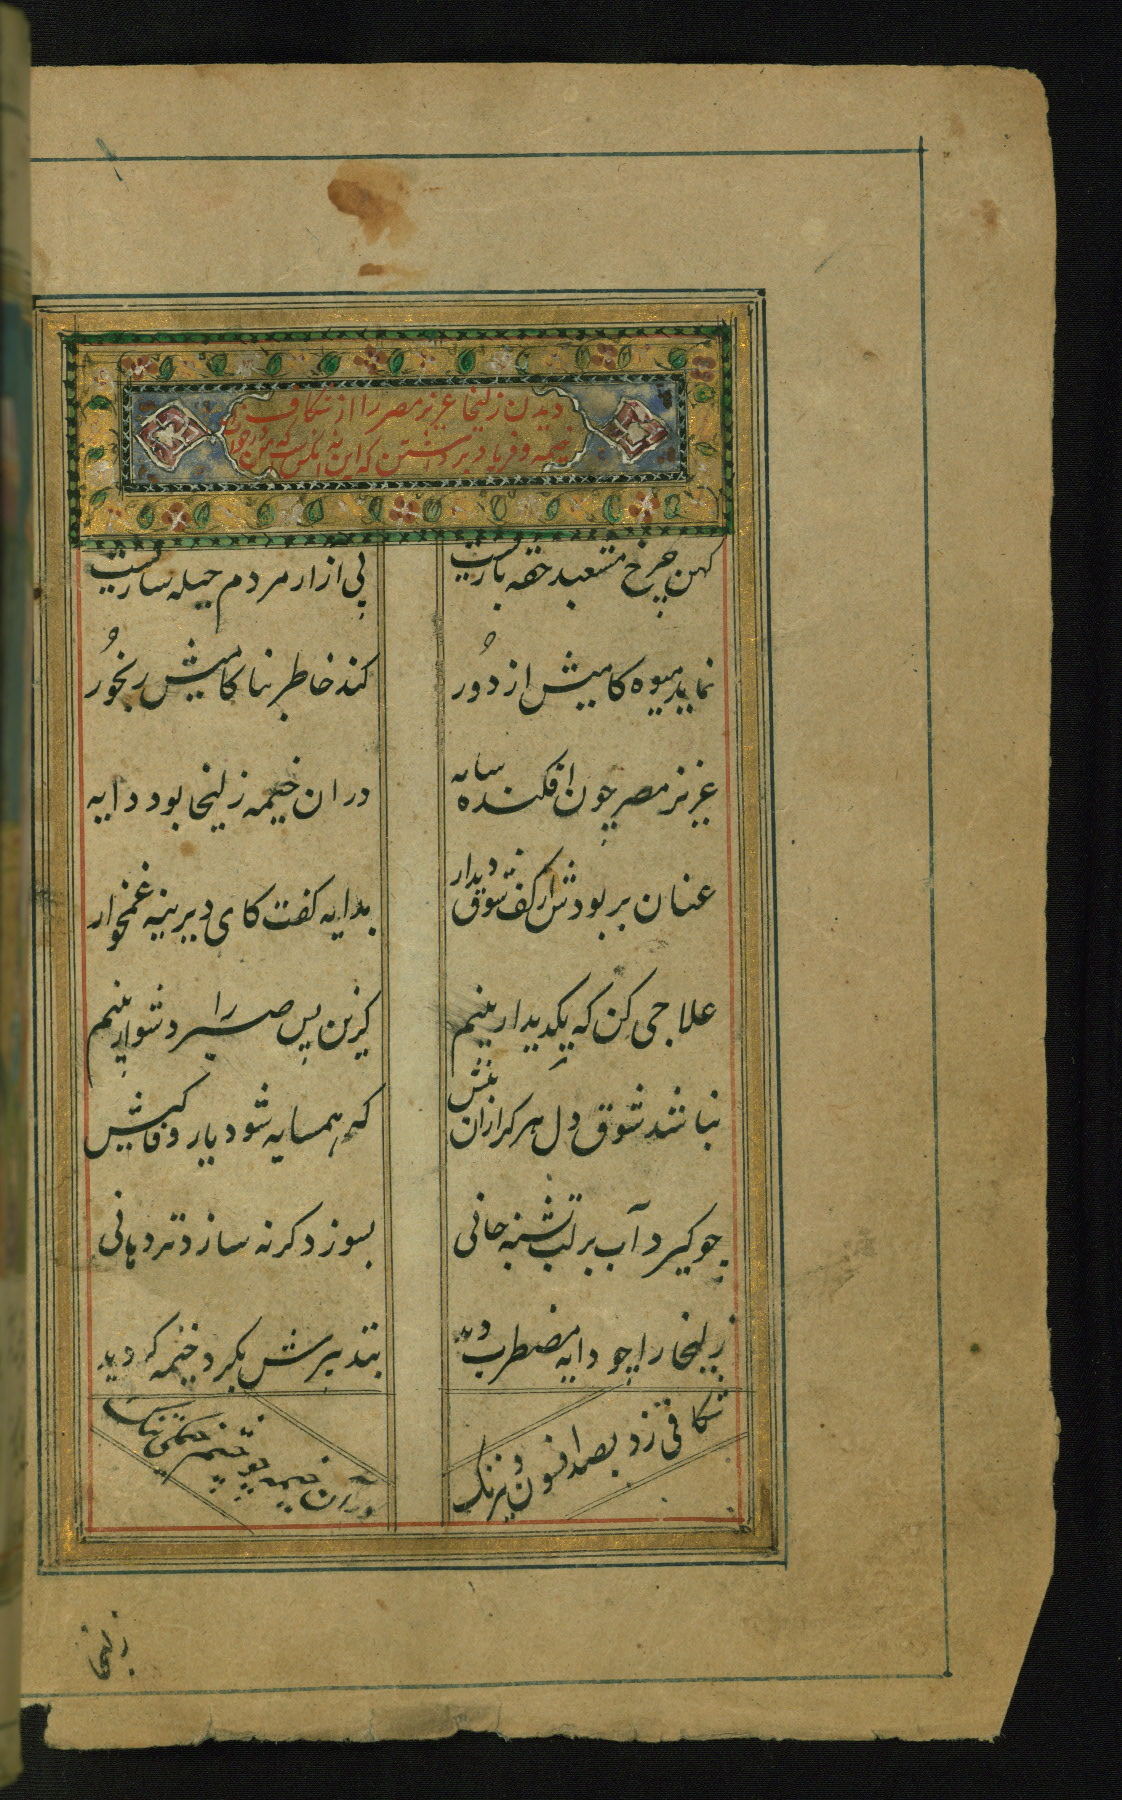 دیدن زلیخا عزیز مصر را از شکاف
خیمه و فریاد برداشتن که این نه انکس است که من در خواب
کهن چرخ مشعبد حقه بازیست
پی ازار مردم حیله سازیست
نماید میوه کامیش از دُور
کند خاطر بنا کامیش رنجُور
عزیز مصر چون افکنده سایه
دران خیمه زلیخا بود دایه
عنان بربودش از کف شوق دیدار
بدایه کفت کای دیرینه غمخوار
علاجی کن که یکدیدار بینم
کزین پس صبر را دشوار بینم
نباشد شوق دل هرکز ازان بیش
که همسایه شود یار وفا کیش
چو کیرد آب بر لب تشنه جانی
بسوزد کرنه سازد تر دهانی
زلیخا را چو دایه مضطرب دید
بتدبیرش بکرد خیمه کردید
شکافی زد بصد افسون و نیرنک
در آن خیمه چو چشم خیمکی تنک
زلیخا